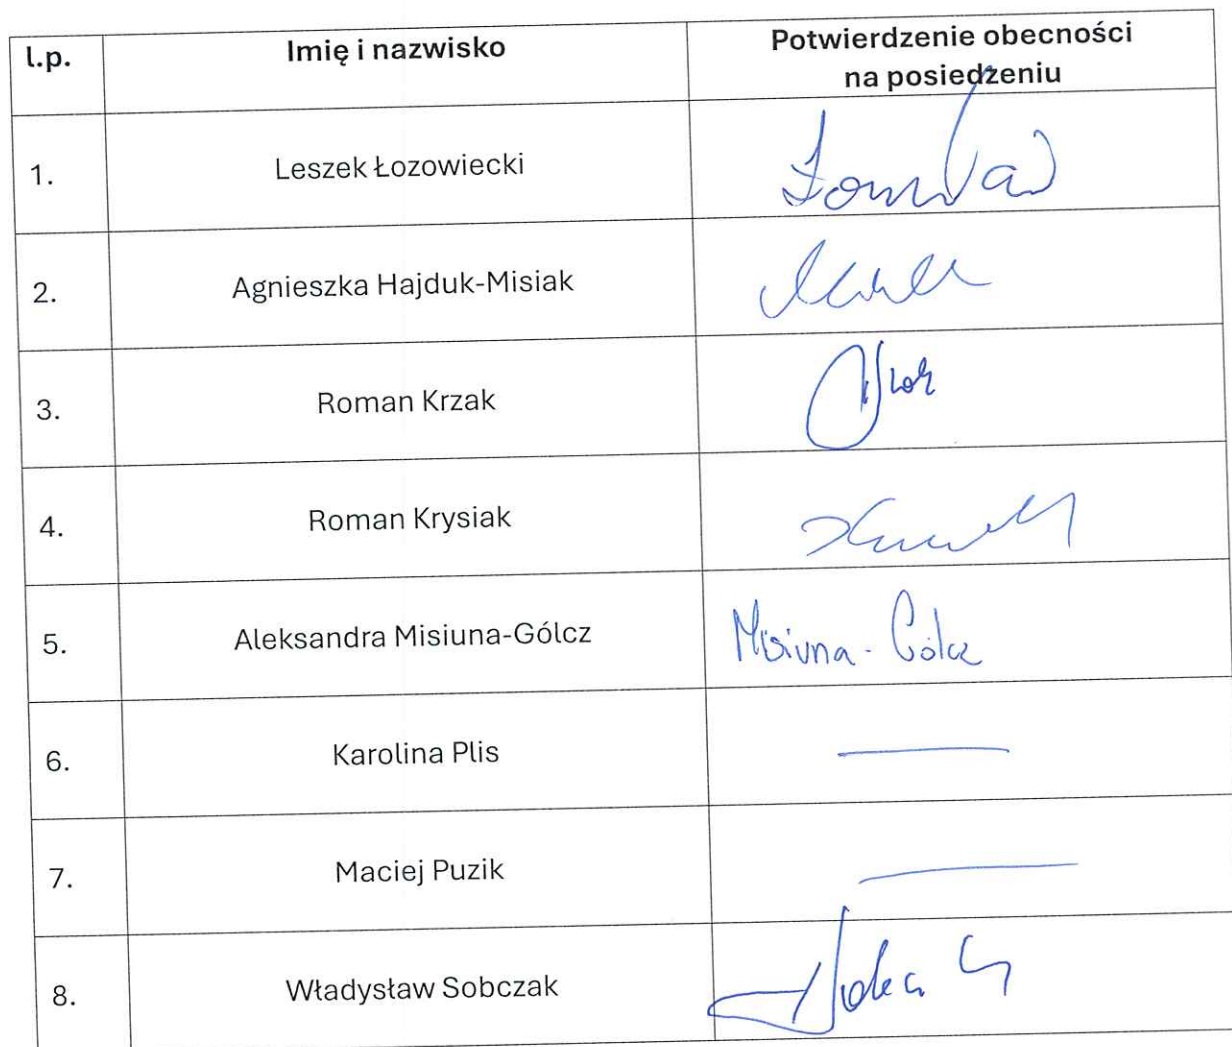 l.p. Imię i nazwisko Potwierdzenie obecności
na posiedzeniu
1. Leszek Łozowiecki
2. Agnieszka Hajduk-Misiak
3. Roman Krzak
4. Roman Krysiak
5. Aleksandra Misiuna-Gólcz Misiuna-Gólcz
6. Karolina Plis
7. Maciej Puzik
8. Władysław Sobczak